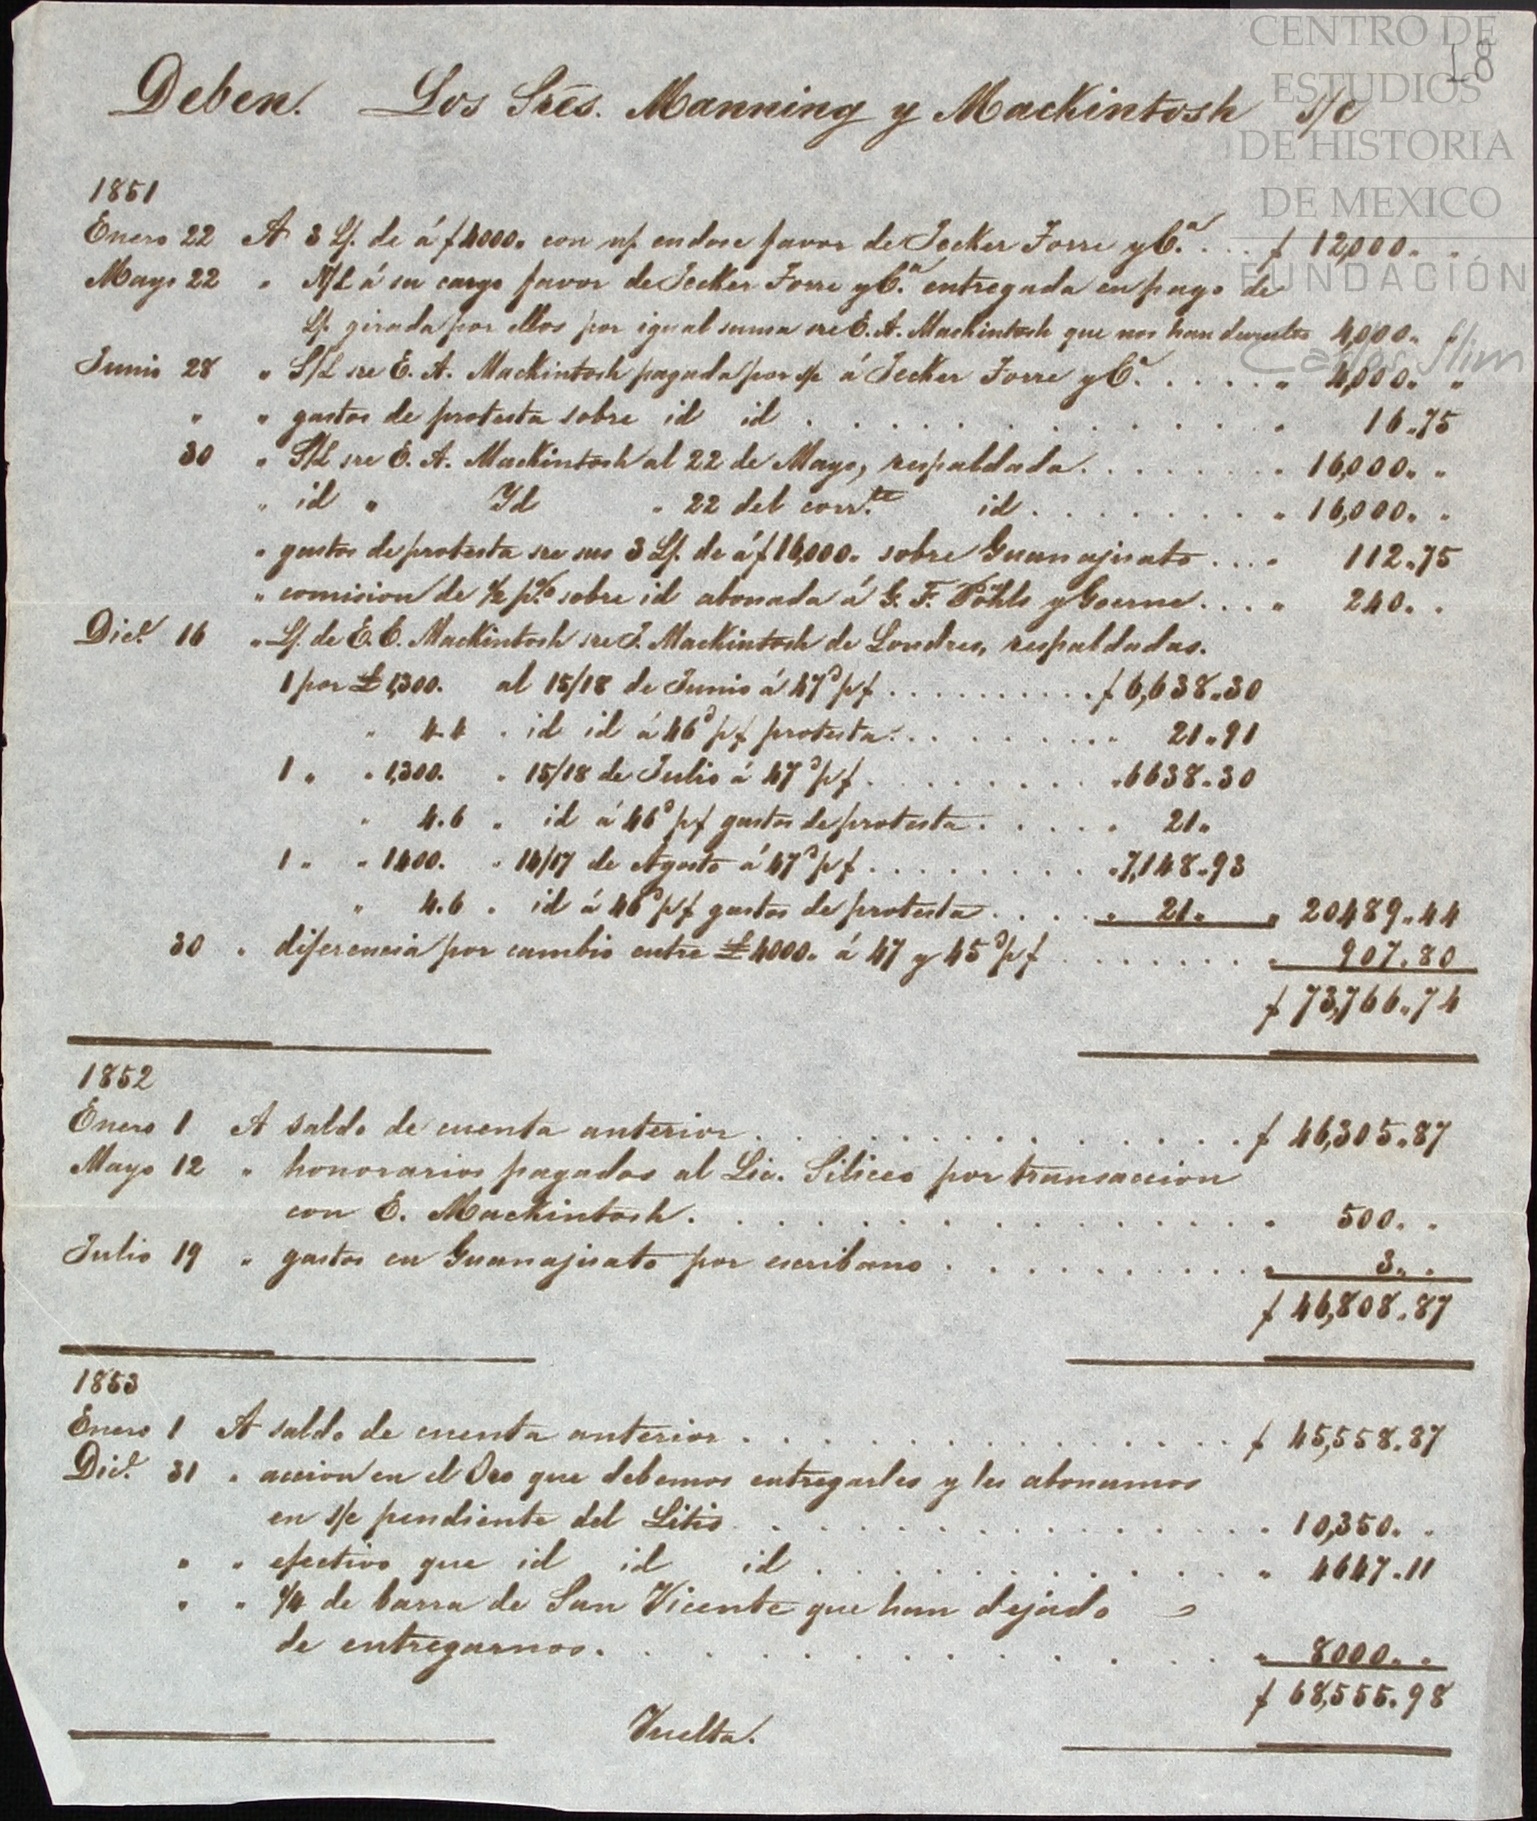 CENTRO DE
ESTUDIOS
DE HISTORIA
DE MEXICO
FUNDACIÓN
Carlos Slim
18
Deben. Los Sres. Manning y Mackintosh s/c
1851
Enero 22 A 3 Lf. de á $4000. con n/ endose favor de Jecker Torre y Ca. . . $ 12,000. "
Mayo 22 " N/L á su cargo favor de Jecker Torre y Ca. entregada en pago de
Lf. girada por ellos por igual suma sre E. A. Mackintosh que nos han devuelto 4,000. "
Junio 28 " S/L sre E. A. Mackintosh pagada por s/c á Jecker Torre y Ca. . . . . . " 4,000. "
" " gastos de protesta sobre id id . . . . . . . . . . . . " 16.75
30 " S/L sre E. A. Mackintosh al 22 de Mayo, respaldada. . . . . . . " 16,000. "
" id " Id " 22 del corr.te id . . . . . . . . " 16,000. "
" gastos de protesta sre sus 3 Lf. de á $16,000. sobre Guanajuato . . . " 112.75
" comision de 1/2 p% sobre id abonada á G. F. Pöhls y Goerne. . . . " 240. "
Dice. 16 " Lf. de E. C. Mackintosh sre J. Mackintosh de Londres, respaldadas.
1 por £1,300. al 15/18 de Junio á 47d p$ . . . . . . . . . . $ 6,638.30
" 4.4 " id id á 46d p$ protesta. . . . . . . . . . " 21.91
1 " " 1,300. " 15/18 de Julio á 47d p$ . . . . . . . . . "6638.30
" 4.6 " id á 46d p$ gastos de protesta. . . . . " 21.
1 " " 1400. " 14/17 de Agosto á 47d p$ . . . . . . . . "7,148.93
" 4.6 " id á 46d p$ gastos de protesta. . . . . " 21. " 20489.44
30 " diferencia por cambio entre £4000. á 47 y 45d p$ . . . . . . . " 907.80
$ 73,766.74
1852
Enero 1 A saldo de cuenta anterior . . . . . . . . . . . . . . . $ 46,305.87
Mayo 12 " honorarios pagados al Lic. Siliceo por transaccion
con E. Mackintosh. . . . . . . . . . . . . . . . " 500. "
Julio 19 " gastos en Guanajuato por escribano . . . . . . . . . . " 3. "
$ 46,808.87
1853
Enero 1 A saldo de cuenta anterior . . . . . . . . . . . . . . . $ 45,558.87
Dice. 31 " accion en el Oro que debemos entregarles y les abonamos
en s/c pendiente del Litis . . . . . . . . . . . . . " 10,350. "
" " efectivo que id id id . . . . . . . . . . . . " 4647.11
" " 1/4 de barra de San Vicente que han dejado
de entregarnos. . . . . . . . . . . . . . . " 8000. "
$ 68,555.98
Vuelta.